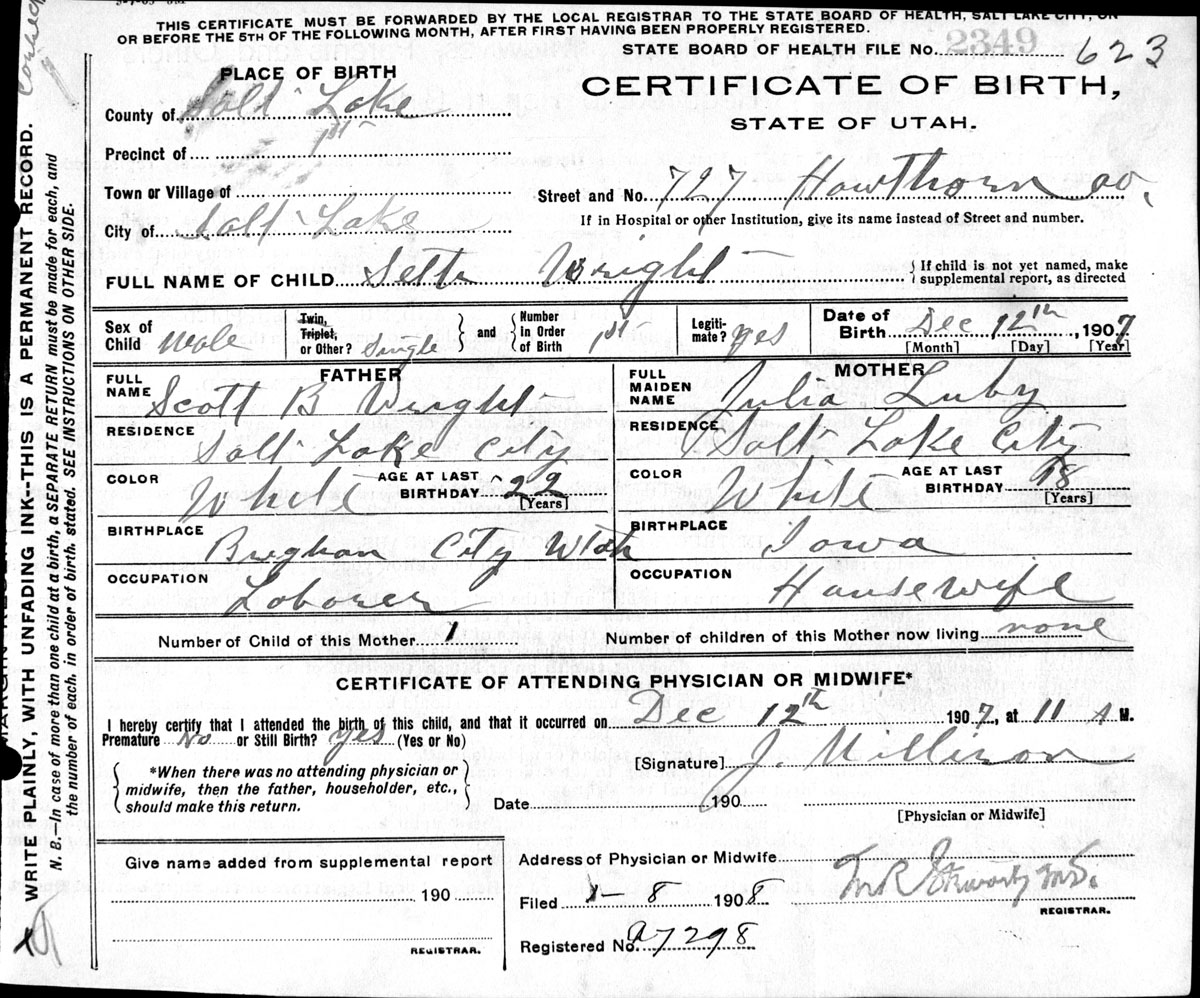 THIS CERTIFICATE MUST BE FORWARDED BY THE LOCAL REGISTRAR TO THE STATE BOARD OF HEALTH, SALT LAKE CITY, ON
OR BEFORE THE 5TH OF THE FOLLOWING MONTH, AFTER FIRST HAVING BEEN PROPERLY REGISTERED.
STATE BOARD OF HEALTH FILE No. 2349 623
PLACE OF BIRTH
CERTIFICATE OF BIRTH,
STATE OF UTAH.
County of Salt Lake
Precinct of 1st
Town or Village of
Street and No. 727 Hawthorn av.
If in Hospital or other Institution, give its name instead of Street and number.
City of Salt Lake
FULL NAME OF CHILD Seth Wright
If child is not yet named, make
supplemental report, as directed
Sex of Child Male
Twin, Triplet, or Other? Single
and Number in Order of Birth 1st
Legiti-mate? yes
Date of Birth Dec 12th, 1907
[Month] [Day] [Year]
FATHER
MOTHER
FULL NAME Scott B Wright
FULL MAIDEN NAME Julia Luby
RESIDENCE Salt Lake City
RESIDENCE Salt Lake City
COLOR White AGE AT LAST BIRTHDAY 22 [Years]
COLOR White AGE AT LAST BIRTHDAY 18 [Years]
BIRTHPLACE Brighan City Utah
BIRTHPLACE Iowa
OCCUPATION Laborer
OCCUPATION Housewife
Number of Child of this Mother 1
Number of children of this Mother now living none
CERTIFICATE OF ATTENDING PHYSICIAN OR MIDWIFE*
I hereby certify that I attended the birth of this child, and that it occurred on Dec 12th 1907, at 11 A M.
Premature No or Still Birth? yes (Yes or No)
*When there was no attending physician or
midwife, then the father, householder, etc.,
should make this return.
[Signature] J.
Date 190
[Physician or Midwife]
Give name added from supplemental report
190
REGISTRAR.
Address of Physician or Midwife
Filed 1-8 1908
REGISTRAR.
Registered No. A7298
WRITE PLAINLY, WITH UNFADING INK--THIS IS A PERMANENT RECORD.
N. B.—In case of more than one child at a birth, a SEPARATE RETURN must be made for each, and
the number of each, in order of birth, stated. SEE INSTRUCTIONS ON OTHER SIDE.